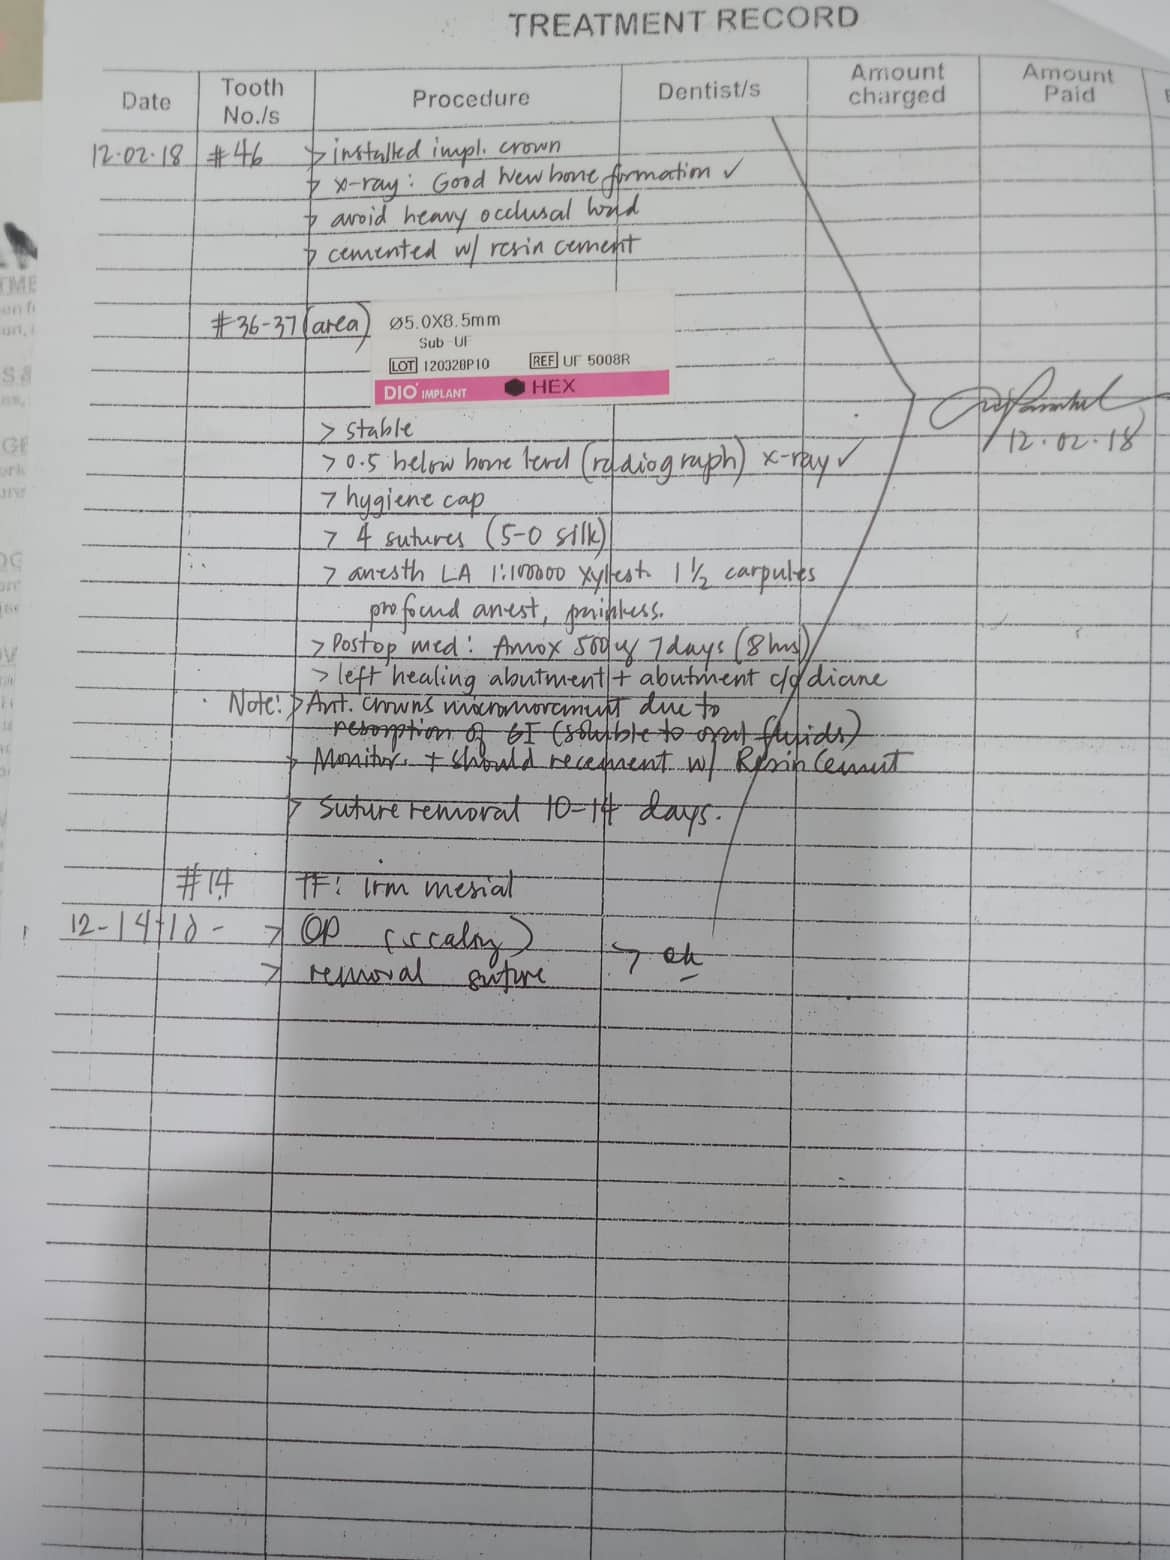 TREATMENT RECORD
Date Tooth No./s Procedure Dentist/s Amount charged Amount Paid
12.02.18 #46 > installed impl. crown
> x-ray: Good New bone formation ✓
> avoid heavy occlusal load
> cemented w/ resin cement
#36-37 (area)
Ø5.0X8.5mm
Sub-UF
LOT 120328P10 REF UF 5008R
DIO IMPLANT HEX
> stable
> 0.5 below bone level (radiograph) x-ray ✓
12.02.18
> hygiene cap
> 4 sutures (5-0 silk)
> anesth LA 1:100000 1 ½ carpules
profound anest, painless.
> Postop med: Amox 500 7 days (8 hrs)
> left healing abutment + abutment c/o diane
Note: > Ant. crowns micromovement due to
resorption of GI (soluble to oral fluids)
> Monitor + should recement w/ Resin Cement
> Suture removal 10-14 days.
#14 TF: irm mesial
12-14-18 - > OP (scaling)
> removal suture